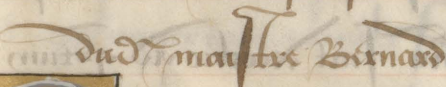 dud maistre Bernard